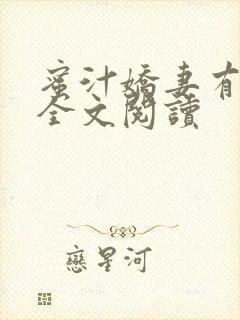 蜜汁嬌妻有
全文閱讀
戀星河